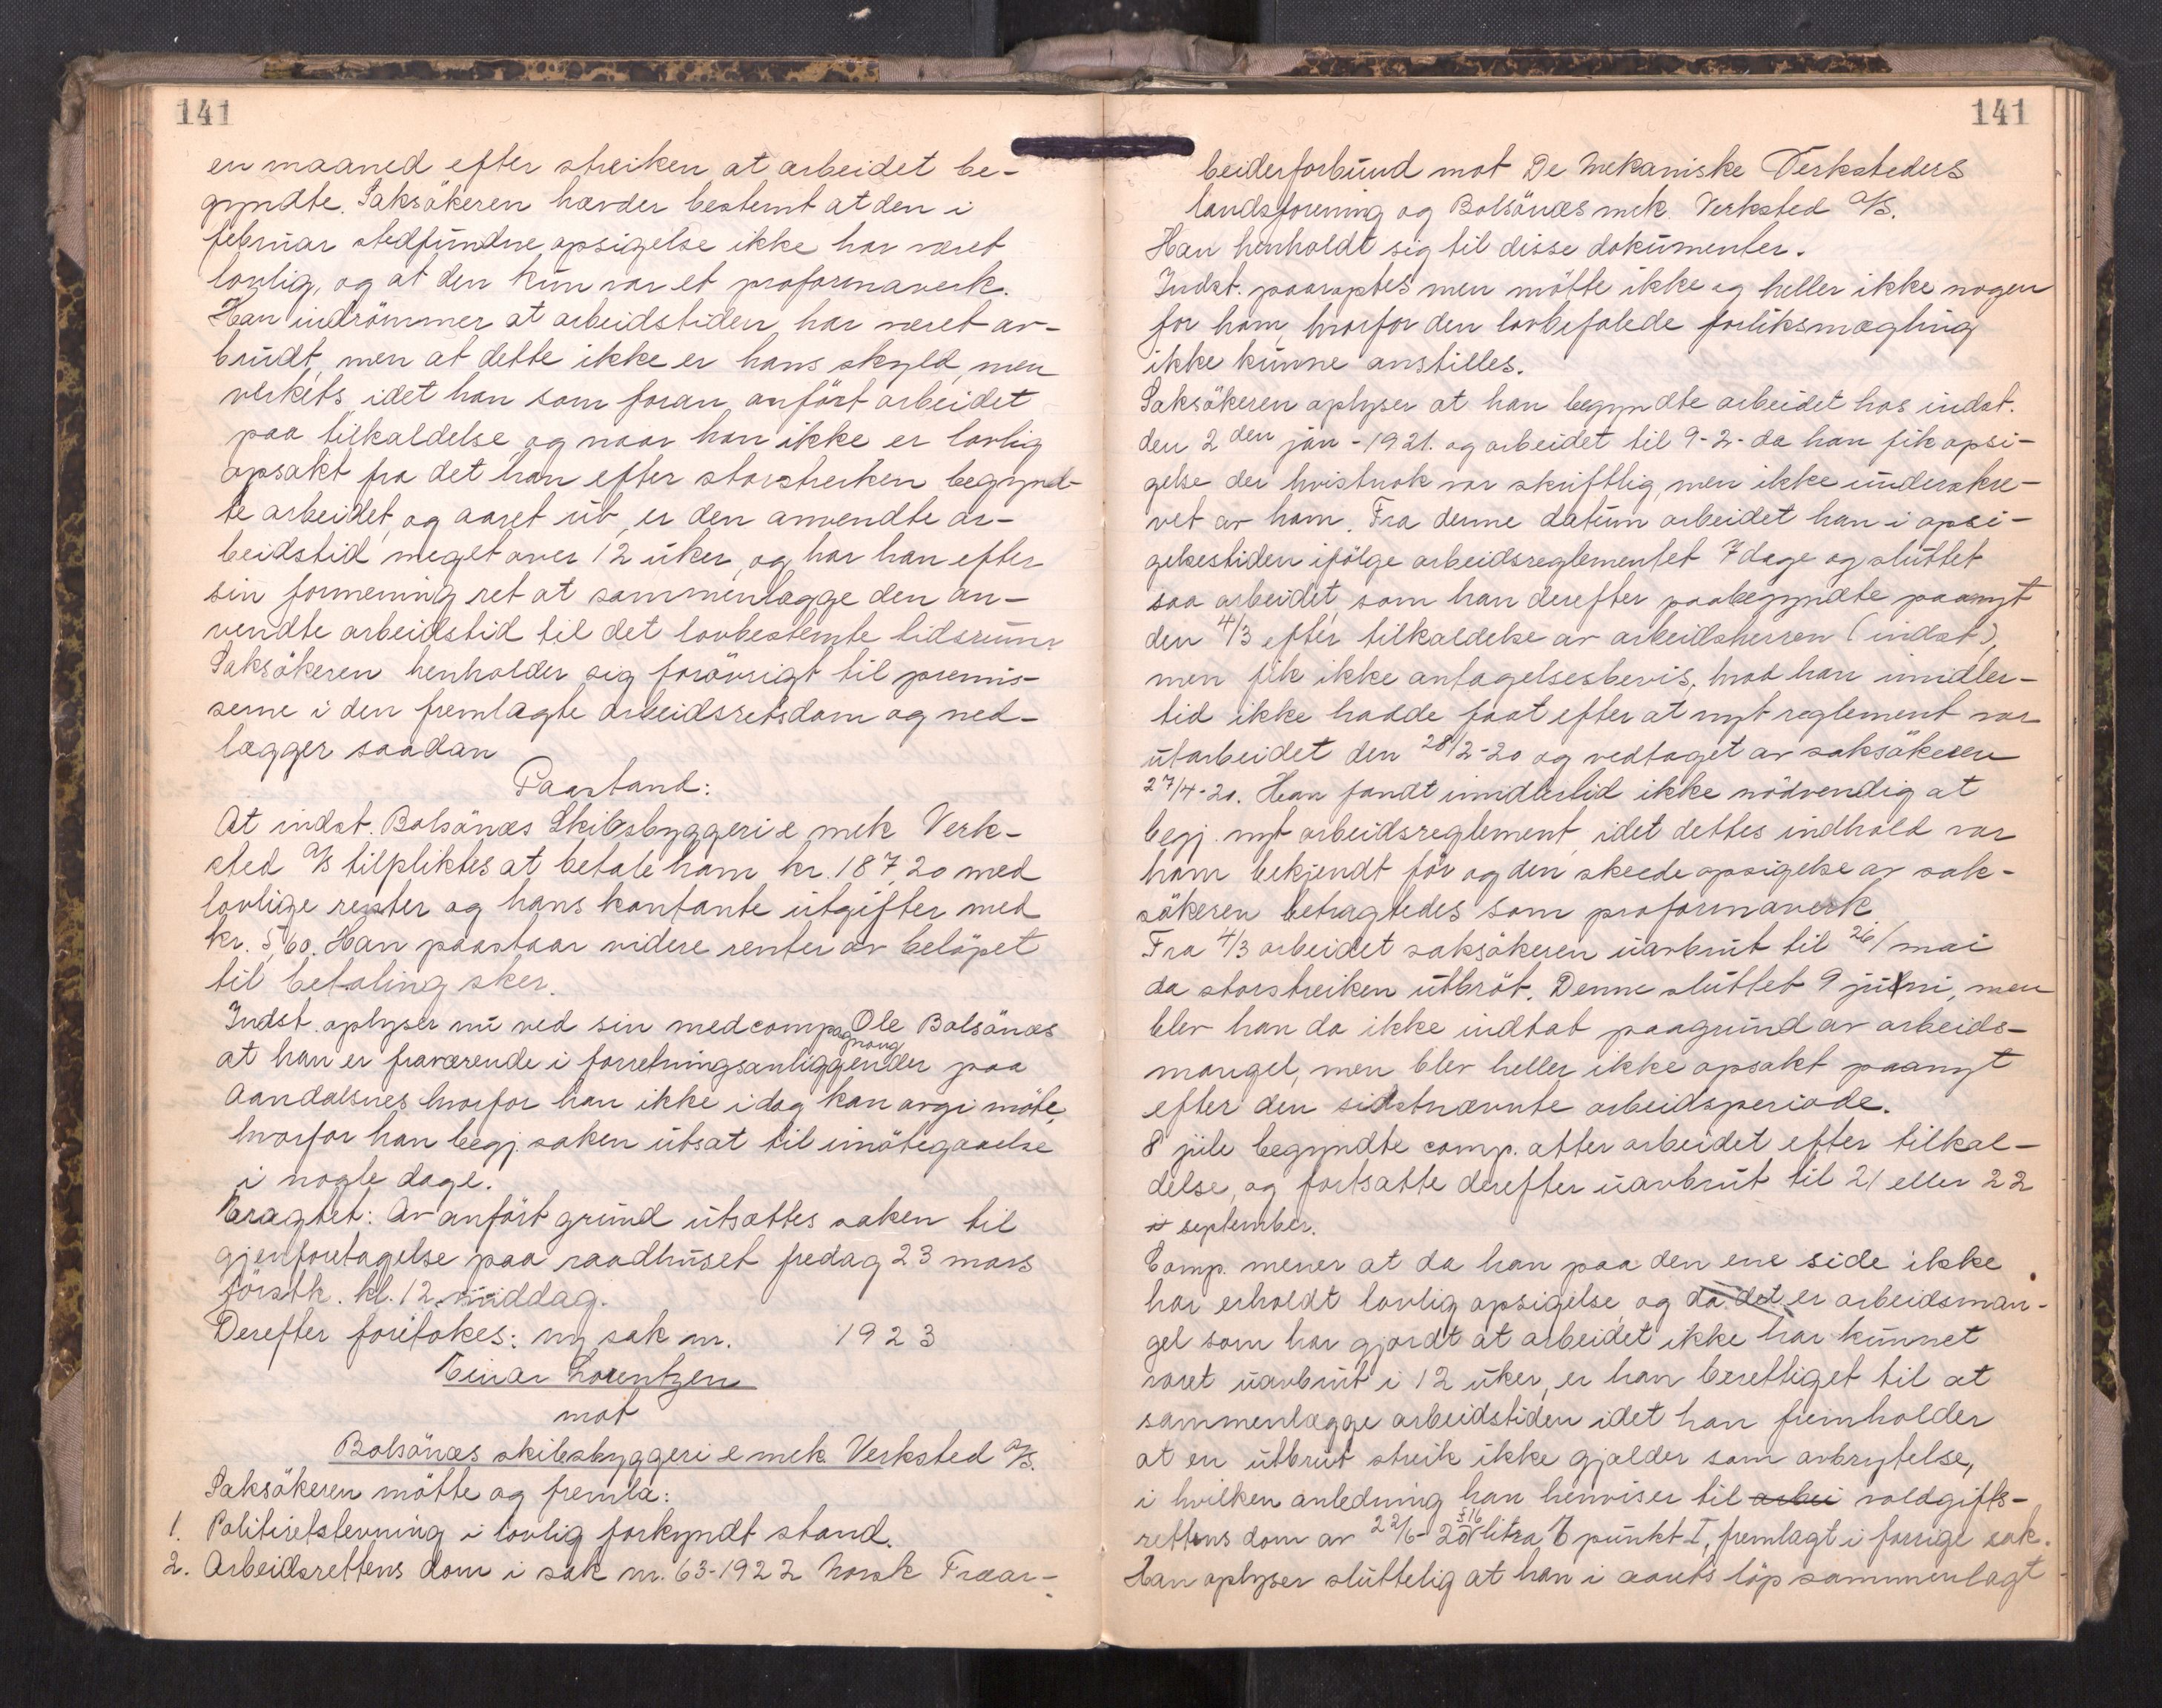 141
en maaned efter streiken at arbeidet be-
gyndte. Saksökeren hævder bestemt at den i
februar stedfundne opsigelse ikke har været
lovlig, og at den kun var et proformaverk.
Han indrömmer at arbeidstiden har været av-
brudt, men at dette ikke er hans skyld, men
verkets, idet han som foran anfört arbeidet
paa tilkaldelse og naar han ikke er lovlig
opsakt fra det han efter storstreiken begynd-
te arbeidet, og aaret ut, er den anvendte ar-
beidstid meget over 12 uker, og har han efter
sin formening ret at sammenlægge den an-
vendte arbeidstid til det lovbestemte tidsrum.
Saksökeren henholder sig forövrigt til premis-
serne i den fremlagte arbeidsretsdom og ned-
lægger saadan
Paastand:
At indst. Bolsönæs Skibsbyggeri & mek Verk-
sted A/S tilpliktes at betale ham kr. 187,20 med
lovlige renter og hans kontante utgifter med
kr. 5,60. Han paastaar videre renter av belöpet
til betaling sker.
Indst. oplyser nu ved sin medcompagnong Ole Bolsönæs
at han er fraværende i forretningsanliggender paa
Aandalsnes hvorfor han ikke idag kan avgi möte,
hvorfor han begj. saken utsat til imötegaaelse
i nogle dage.
Eragtet: Av anfört grund utsættes saken til
gjenforetagelse paa raadhuset fredag 23 mars
förstk. kl. 12 middag.
Derefter foretokes: ny sak nr. 1923
Einar Lorentzen
mot
Bolsönæs skibsbyggeri & mek. Verksted A/S.
Saksökeren mötte og fremla:
1. Politiretstevning i lovlig forkyndt stand.
2. Arbeidsrettens dom i sak nr. 63-1922 Norsk Træar-
141
beiderforbund mot De Mekaniske Verksteders
landsforening og Bolsönæs mek. Verksted A/S.
Han henholdt sig til disse dokumenter.
Indst. paaroptes men mötte ikke og heller ikke nogen
for ham, hvorfor den lovbefalede forliksmægling
ikke kunne anstilles.
Saksökeren oplyser at han begyndte arbeidet hos indst.
den 2den jan - 1921. og arbeidet til 9-2- da han fik opsi-
gelse der hvistnok var skriftlig, men ikke underskre-
vet av ham. Fra denne datum arbeidet han i opsi-
gelsestiden ifölge arbeidsreglementet 7 dage og sluttet
saa arbeidet, som han derefter paabegyndte paanyt
den 4/3 efter tilkaldelse av arbeidsherren (indst),
men fik ikke antagelsesbevis, hvad han imidler-
tid ikke hadde faat efter at nyt reglement var
utarbeidet den 28/2-20 og vedtaget av saksökeren
27/4-20. Han fandt imidlertid ikke nödvendig at
begj. nyt arbeidsreglement, idet dettes indhold var
ham bekjendt för og den skeede opsigelse av sak-
sökeren betragtedes som proformaverk.
Fra 4/3 arbeidet saksökeren uavbrut til 26/ mai
da storstreiken utbröt. Denne sluttet 9 juni, men
blev han da ikke indtat paagrund av arbeids-
mangel, men blev heller ikke opsakt paanyt
efter den sidstnævnte arbeidsperiode.
8 juli begyndte comp. atter arbeidet efter tilkal-
delse, og fortsatte derefter uavbrut til 21 eller 22
september.
Comp. mener at da han paa den ene side ikke
har erholdt lovlig opsigelse, og da det er arbeidsman-
gel som har gjordt at arbeidet ikke har kunnet
været uavbrut i 12 uker, er han berettiget til at
sammenlægge arbeidstiden idet han fremholder
at en utbrut streik ikke gjælder som avbrytelse,
i hvilken anledning han henviser til arbei voldgifts-
rettens dom av 22/6-20 litra B punkt I, fremlagt i forrige sak.
Han oplyser sluttelig at han i aarets löp sammenlagt